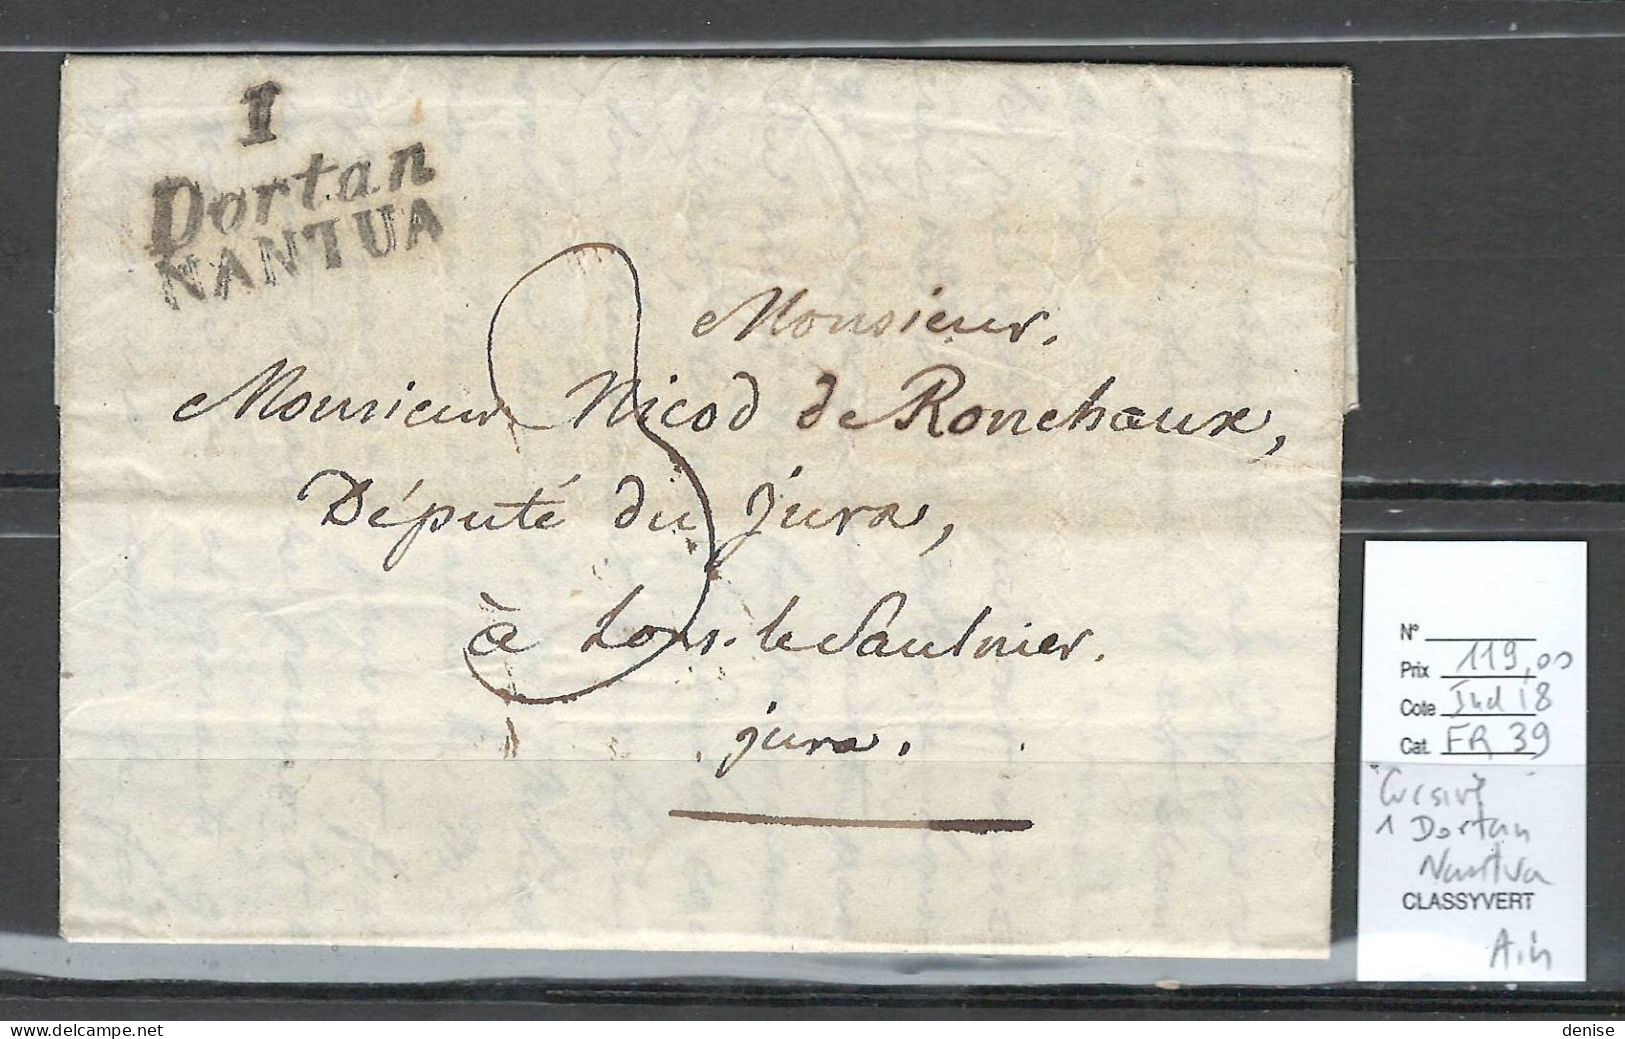 1
Dortan
NANTUA
3
Monsieur.
Monsieur Nicod de Ronchaux,
Député du Jura,
à Lons-le Saulnier.
jura.
N°
Prix 119,00
Cote Ind 18
Cat. FR 39
Cursive
1 Dortan
Nantua
CLASSYVERT
Ain
delcampe.net
denise